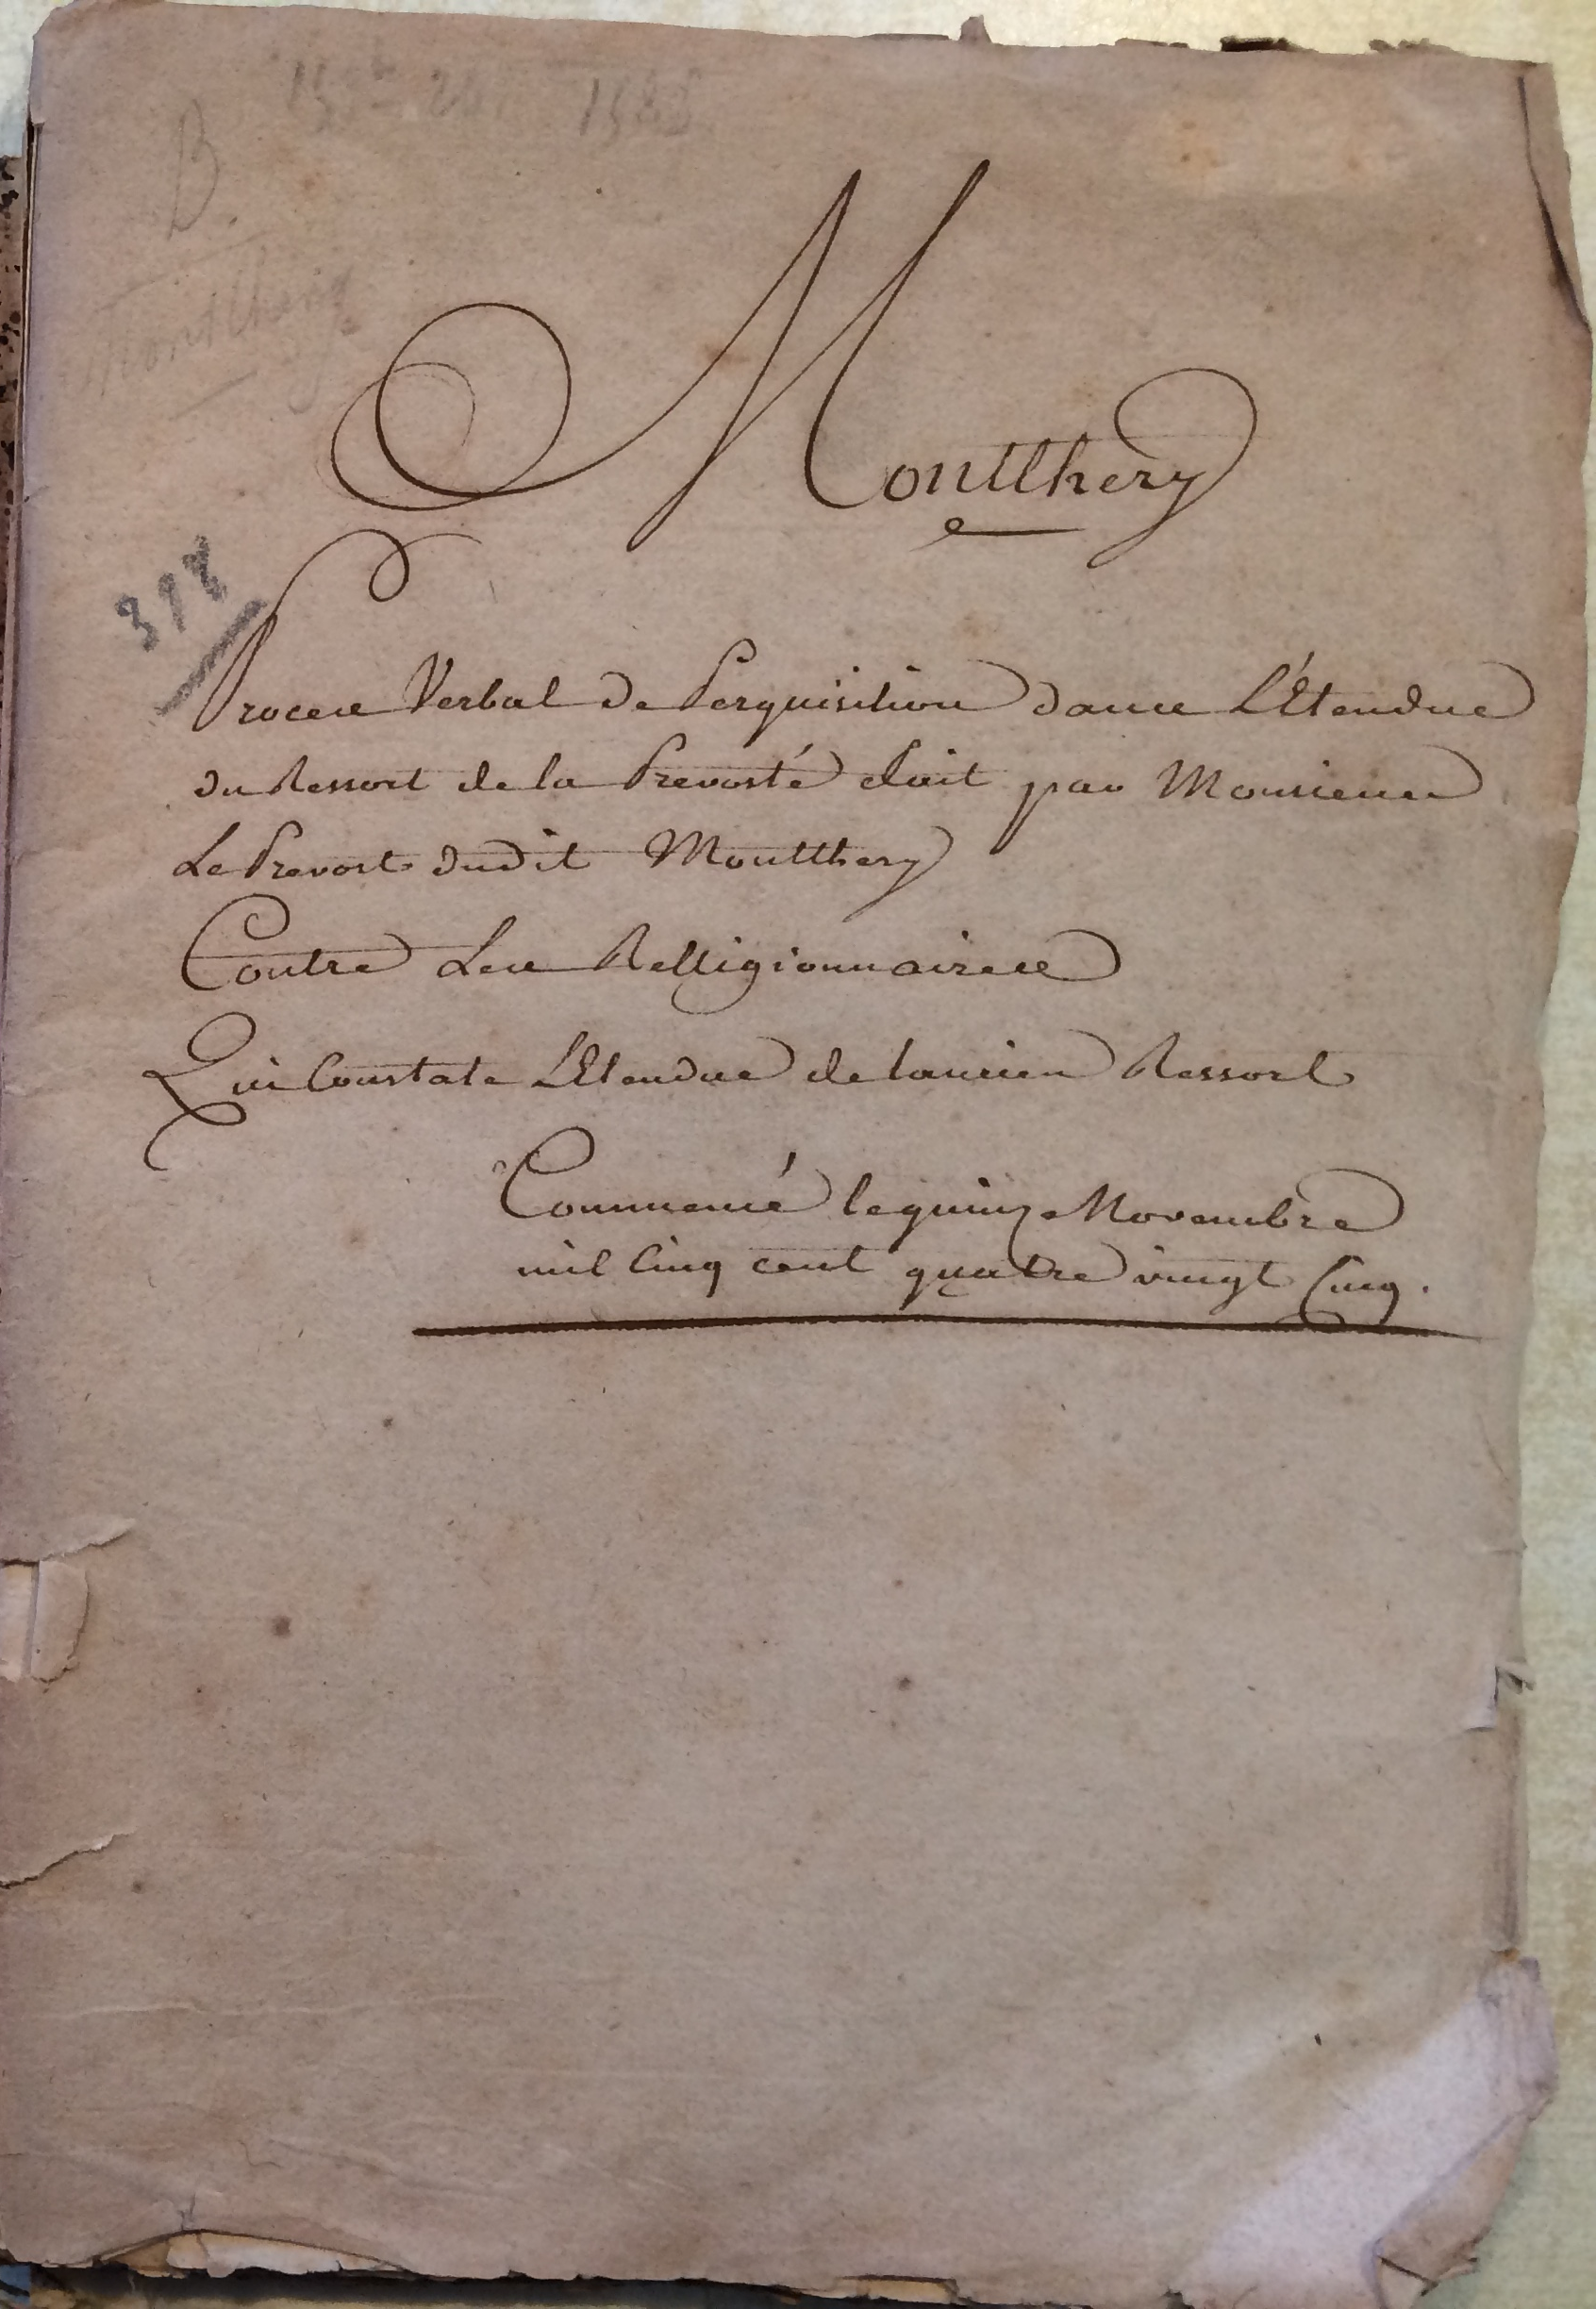 B.
Montlhery
Montlhery
398
Proces Verbal de Perquisition dans L'Etendue
du Ressort de la Prevosté  par Monsieur
Le Prevost dudit Montlhery
Contre Les Relligionnaires
Qui Constate L'Etendue de lancien Ressort
Commencé le quinze Novembre
mil Cinq cent quatre vingt Cinq.